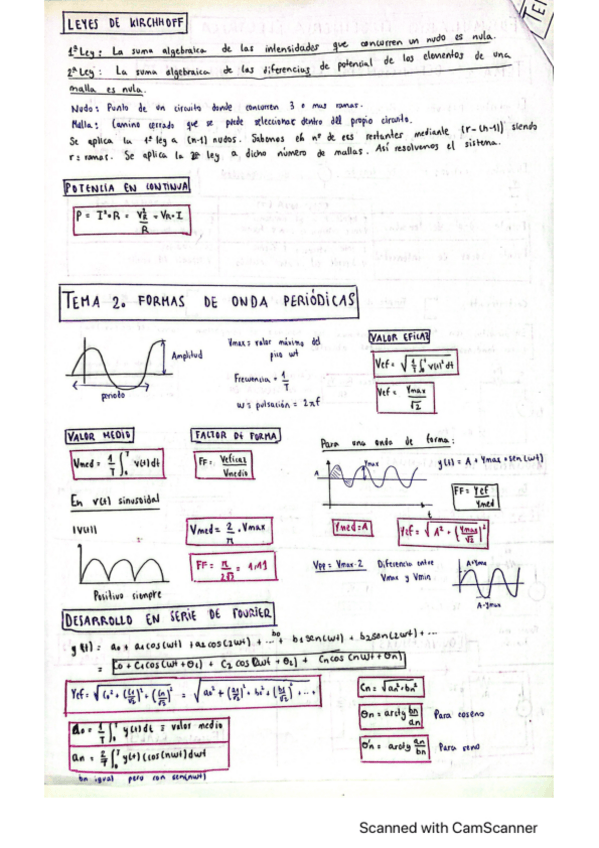 TE
LEYES DE KIRCHHOFF
1ª Ley: La suma algebraica de las intensidades que concurren un nudo es nula.
2ª Ley: La suma algebraica de las diferencias de potencial de los elementos de una
malla es nula.
Nudo: Punto de un circuito donde concurren 3 o mas ramas.
Malla: Camino cerrado que se puede seleccionar dentro del propio circuito.
Se aplica la 1ª ley a (n-1) nudos. Sabemos el nº de ecs restantes mediante (r-(n-1)) siendo
r = ramas. Se aplica la 2ª ley a dicho número de mallas. Así resolvemos el sistema.
POTENCIA EN CONTINUA
P = I²·R = V²R/R = VR·I
TEMA 2. FORMAS DE ONDA PERIÓDICAS
Amplitud
periodo
Vmax = valor máximo del
pico wt
Frecuencia = 1/T
w = pulsación = 2πf
VALOR EFICAZ
Vef = √(1/T ∫₀ᵀ v(t)² dt)
Vef = Vmax/√2
VALOR MEDIO
Vmed = 1/T ∫₀ᵀ v(t) dt
FACTOR DE FORMA
FF = Veficaz/Vmedio
Para una onda de forma:
A
Ymax
t
y(t) = A + Ymax·sen(wt)
FF = Yef/Ymed
Ymed = A
Yef = √(A² + (Ymax/√2)²)
En v(t) sinusoidal
|V(t)|
Positivo siempre
Vmed = 2/π · Vmax
FF = π/2√2 = 1,11
Vpp = Vmax·2
Diferencia entre
Vmax y Vmin
A+Ymax
A-Ymax
DESARROLLO EN SERIE DE FOURIER
y(t) = a0 + a1cos(wt) + a2cos(2wt) + ... b0 + b1sen(wt) + b2sen(2wt) + ...
= C0 + C1cos(wt+θ1) + C2cos(2wt+θ2) + Cncos(nwt+θn)
Yef = √(C0² + (C1/√2)² + (Cn/√2)²) = √(a0² + (a1/√2)² + b0² + (b1/√2)² + ...)
Cn = √(an²+bn²)
θn = arctg bn/an Para coseno
θ'n = arctg an/bn Para seno
a0 = 1/T ∫₀ᵀ y(t) dt ≡ valor medio
an = 2/T ∫₀ᵀ y(t) (cos(nwt) dwt
bn igual pero con sen(nwt)
Scanned with CamScanner